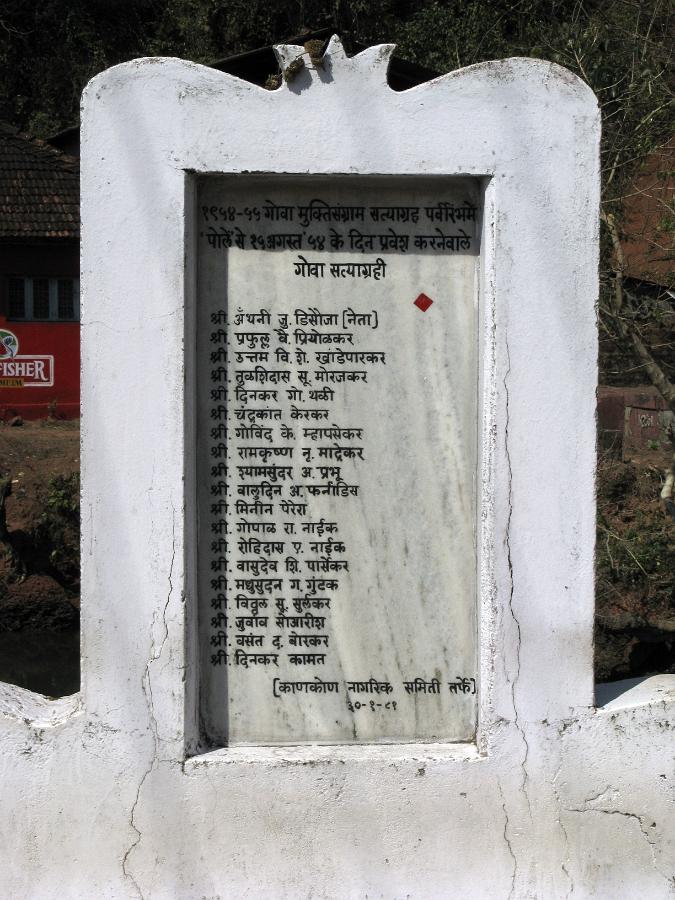 १९५४-५५ गोवा मुक्तिसंग्राम सत्याग्रह पर्वरिभमे
'पोले' से १५ अगस्त '५४ के दिन प्रवेश करनेवाले
गोवा सत्याग्रही
श्री. अँथनी जु. डिसौजा [नेता]
श्री. प्रफुल्ल वै. प्रियोळकर
श्री. उत्तम वि. शे. खांडेपारकर
श्री. तुळशिदास सू. मोरजकर
श्री. दिनकर गो. थळी
श्री. चंद्रकांत केरकर
श्री. गोविंद के. म्हापसेकर
श्री. रामकृष्ण नृ. माद्रेकर
श्री. श्यामसुंदर अ. प्रभू
श्री. बालुदिन अ. फर्नांडिस
श्री. मिनीन पेरेरा
श्री. गोपाळ रा. नाईक
श्री. रोहिदास ए. नाईक
श्री. वासुदेव शि. पार्सेकर
श्री. मधुसुदन ग. गुंटक
श्री. विठ्ठल सू. सुर्लकर
श्री. जुवांव सोआरीश
श्री. वसंत द. बोरकर
श्री. दिनकर कामत
[काणकोण नागरिक समिती तर्फे]
३०-१-८१
FISHER